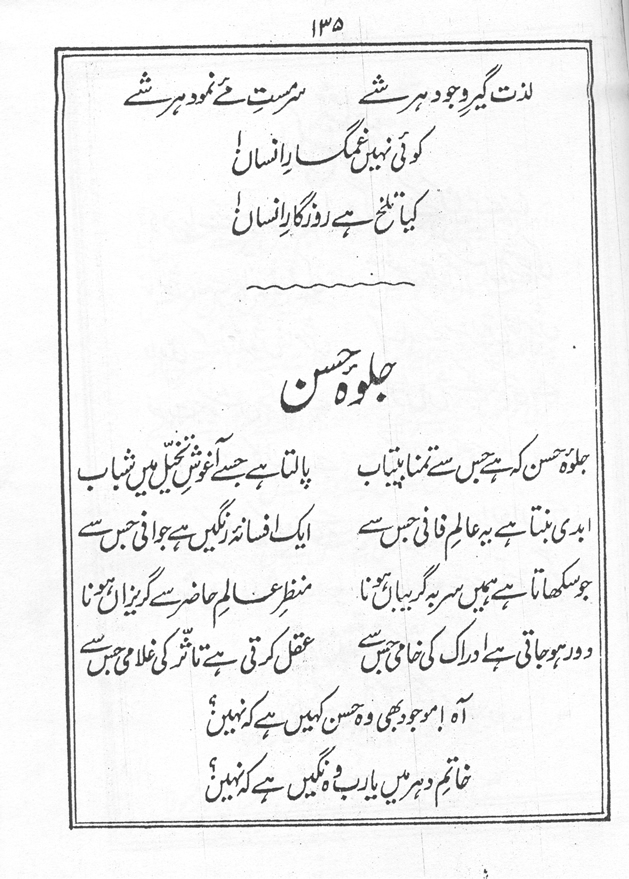 ۱۳۵
لذت گیرِ وجود ہر شے سرمستِ مئے نمود ہر شے
کوئی نہیں غمگسارِ انساں!
کیا تلخ ہے روزگارِ انساں!
جلوۂ حسن
جلوۂ حسن کہ ہے جس سے تمنا بیتاب پالتا ہے جسے آغوشِ تخیّل میں شباب
ابدی بنتا ہے یہ عالمِ فانی جس سے ایک افسانۂ رنگیں ہے جوانی جس سے
جو سکھاتا ہے ہمیں سر بہ گریباں ہونا منظرِ عالمِ حاضر سے گریزاں ہونا
دور ہو جاتی ہے ادراک کی خامی جس سے عقل کرتی ہے تاثّر کی غلامی جس سے
آہ! موجود بھی وہ حسن کہیں ہے کہ نہیں؟
خاتمِ دہر میں یارب وہ نگیں ہے کہ نہیں؟